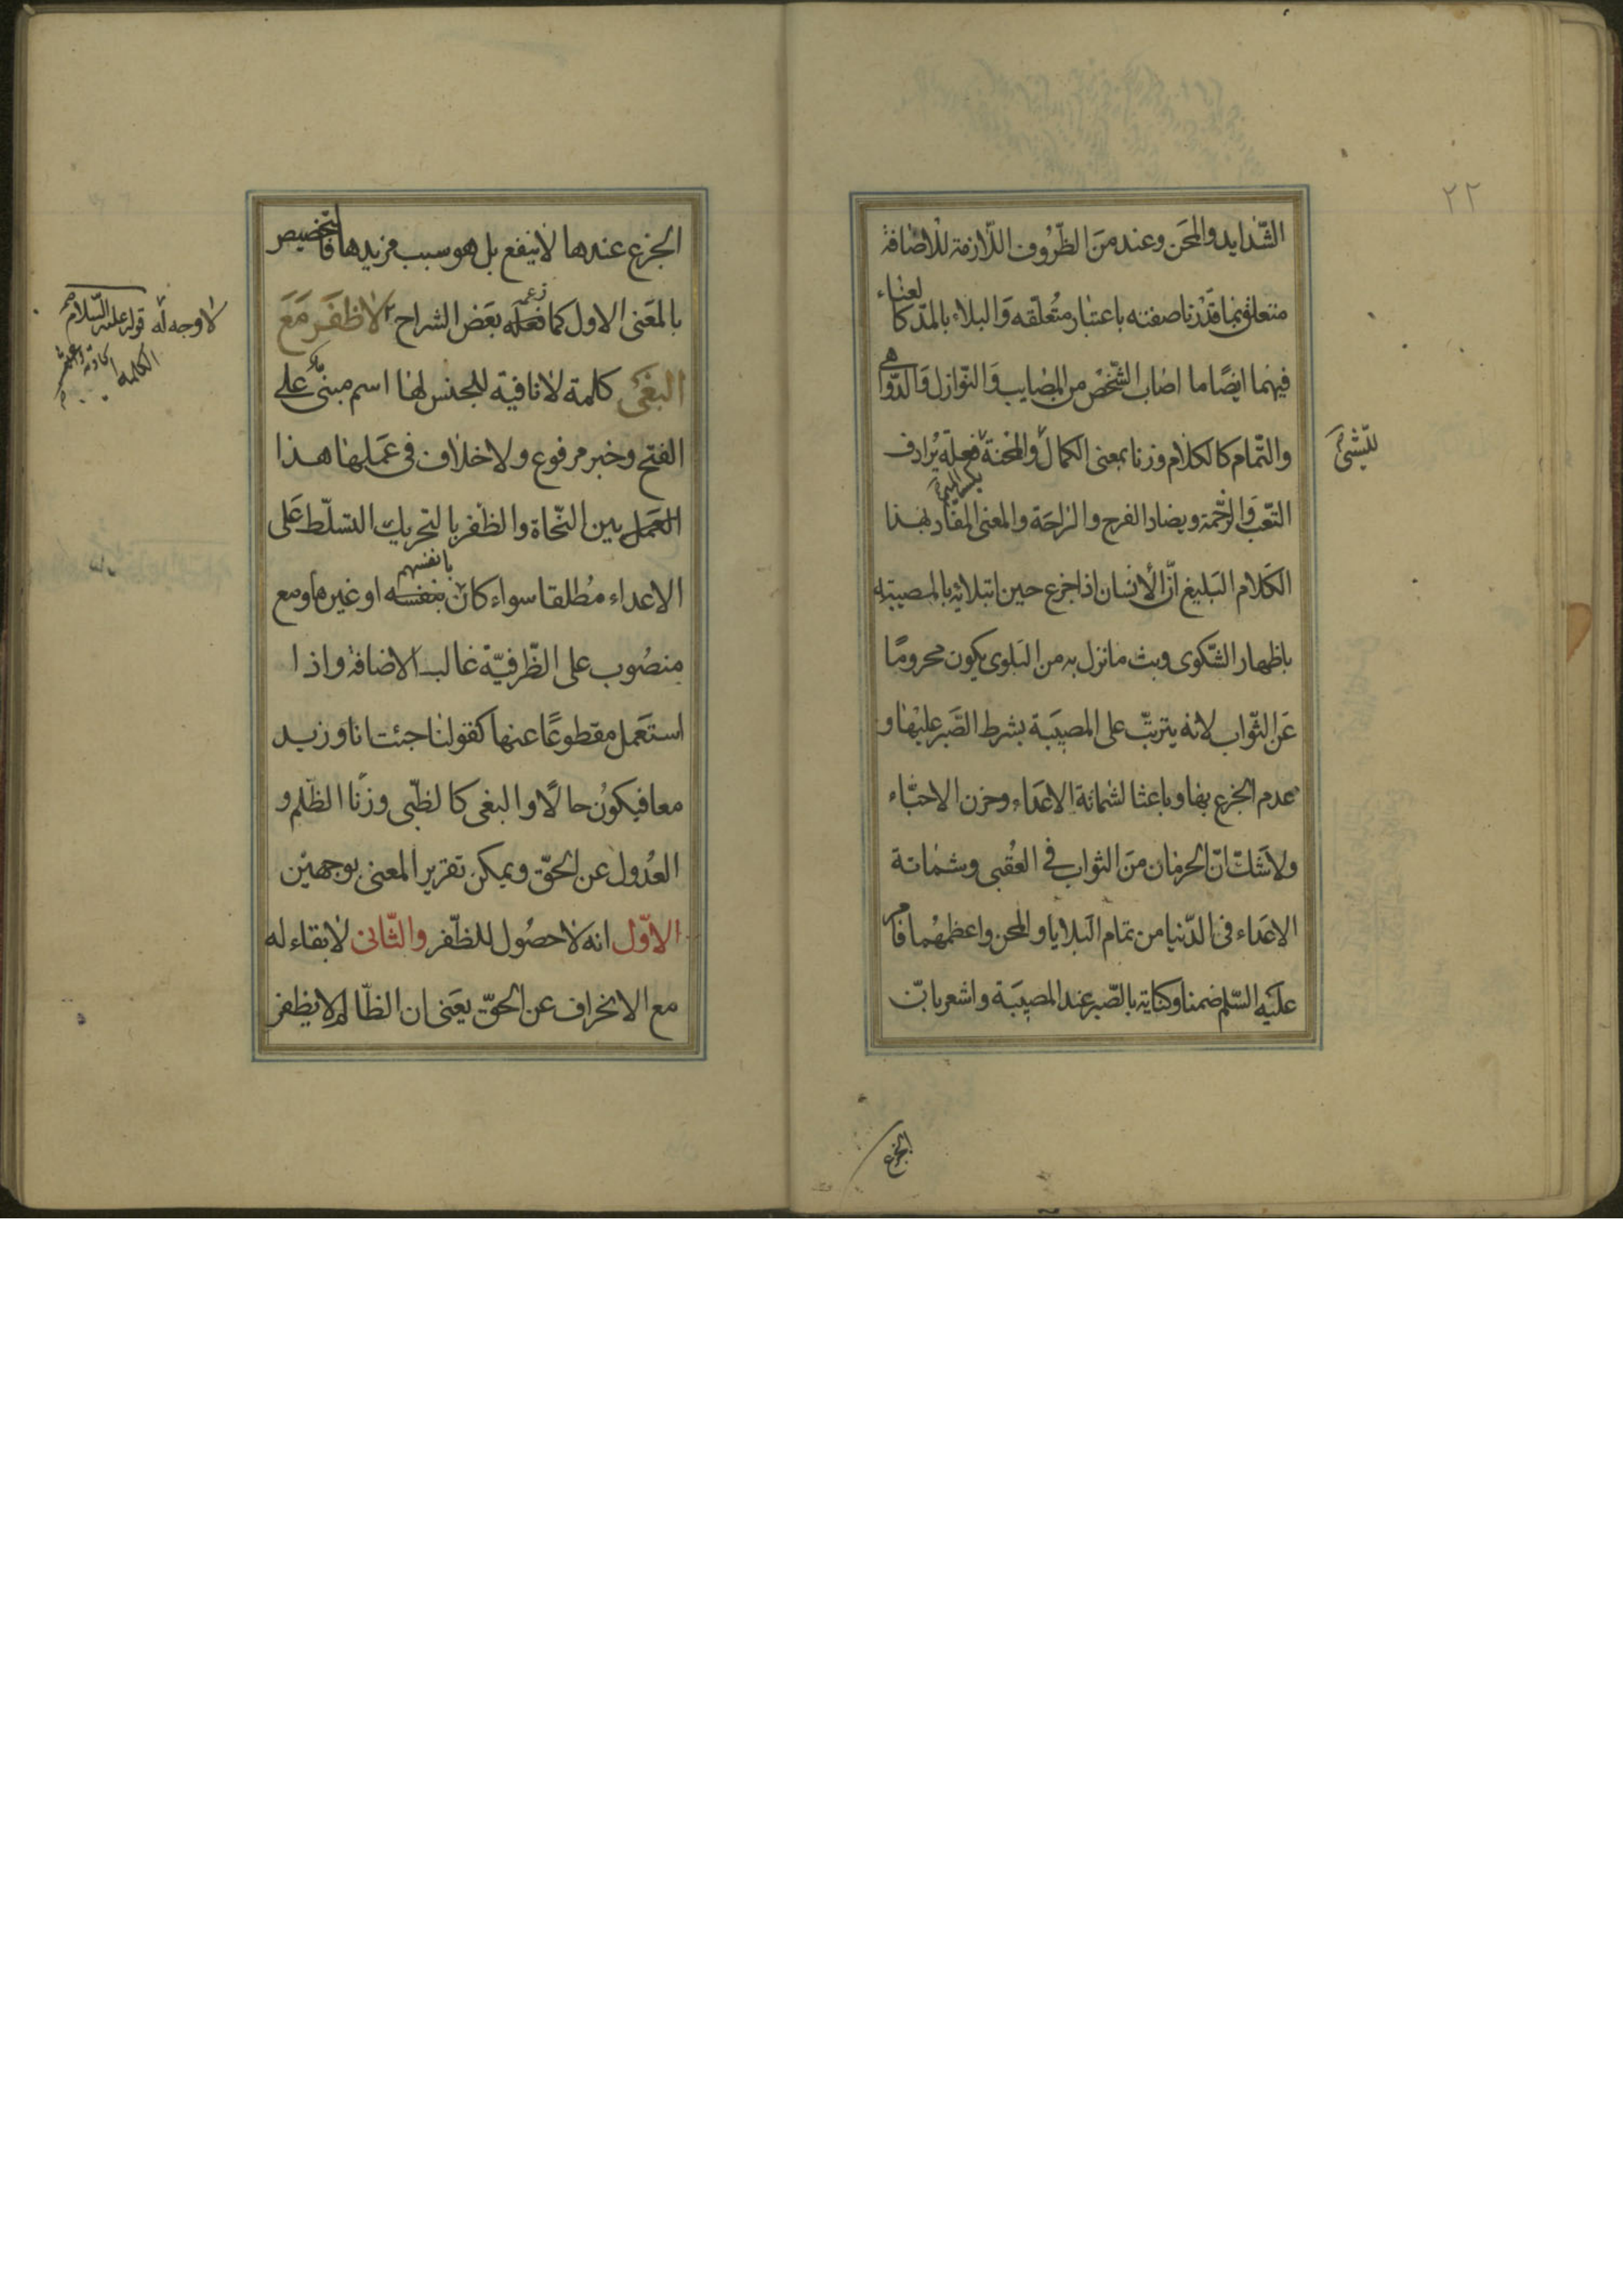 ٢٢
الشّدايد والمحَن وعند منَ الظّرُوف اللّازمة للاضافة
متعلق بما قدّرنا صفته باعتبار متُعلّقه وَالبلاء بالمدّ كا
لعناء
فيهما ايضًا ما اصاب الشّخصْ من المصايب وَالنّوازل وَالدّوا
هى
والتّمام كالكلام وزنا بمعنى الكمال وَالمحنة فعلة يُرادف
للشئ
بكسر الميم
التّعب وَالزّحمة ويضاد الفرح والراحَة والمعنى المفاد بهذا
الكَلام البَليغ انّ الأنسان اذا جزع حين ابتلائه بالمصيبة
باظهار الشّكوى وبث ما نزل به من البَلوى يكون محرومًا
عَن الثّواب لانه يترتبّ على المصيَبة بشرط الصَّبر عليْها و
عدم الجزع بها وباعثا لشماتة الاعَداء وحزن الاحبّاء
ولا شَك انّ الحرمان منَ الثواب فى العُقبى وشماتة
الاعَداء فى الدّنيا من تمام البَلايا والمحن واعظمهُما فامر
علَيه السّلم ضمنا وكناية بالصّبر عند المصيَبة واشعر بانّ
الجزع
الجزع عندها لا ينفع بل هو سبب مزيدها فالتخصيص
بالمعَنى الاول كما فعله بعَض الشراح لا ظفَر مَعَ
زعمه
لا وجه له قوله عليه السّلام
البغَى كلمة لا نافية للجنس لها اسم مبنىّ على
الفتح وخبر مرفوع ولا خلاف فى عَملها هذا
العَمل بين النّحاة والظفر بالتحريك التسلّط عَلى
الاعداء مُطلقا سواء كان بنفسه او غيرها ومع
بانفسهم
منصُوب على الظّرفيّة غالب الاضافة واذا
استعَمل مقطوعًا عنها كقولنا جئت انا وزيد
معا فيكونُ حالًا والبغى كالظّبى وزنًا الظّلم و
العُدول عن الحقّ ويمكن تقرير المعنى بوجهيْن
الاوّل انه لا حصُول للظّفر والثّانى لا بقاء له
مع الانحراف عن الحقّ يعَنى ان الظّالم لا يظفر